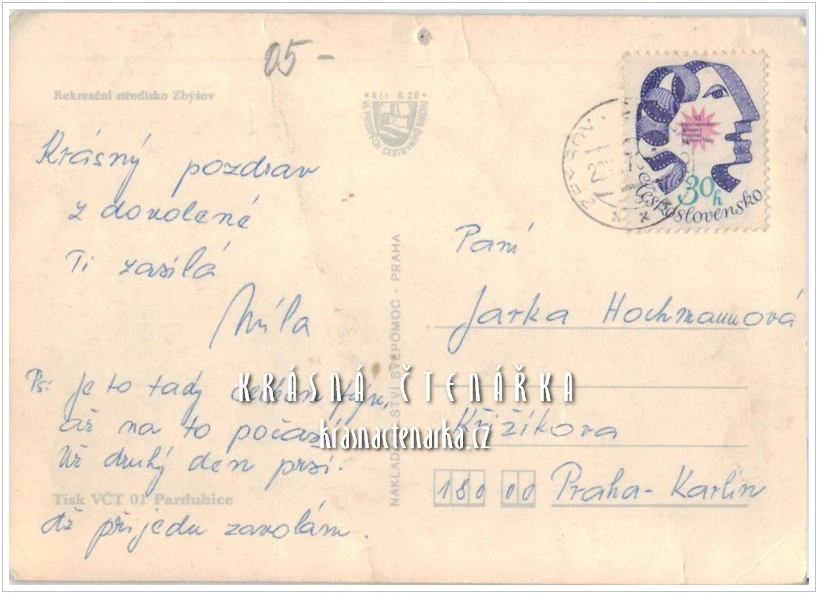 05-
Rekreační středisko Zbýšov
Kčs 0.20
Krásný pozdrav
z dovolené
Ti zasílá
Míla
Ps: je to tady
až na to počasí.
Už druhý den prší.
Až přijedu zavolám.
Tisk VČT 01 Pardubice
NAKLADATELSTVÍ SVÉPOMOC - PRAHA
30h
Československo
Paní
Jarka Hochmannová
Křižíkova
180 00 Praha-Karlín
KRÁSNÁ ČTENÁŘKA
krasnactenarka.cz